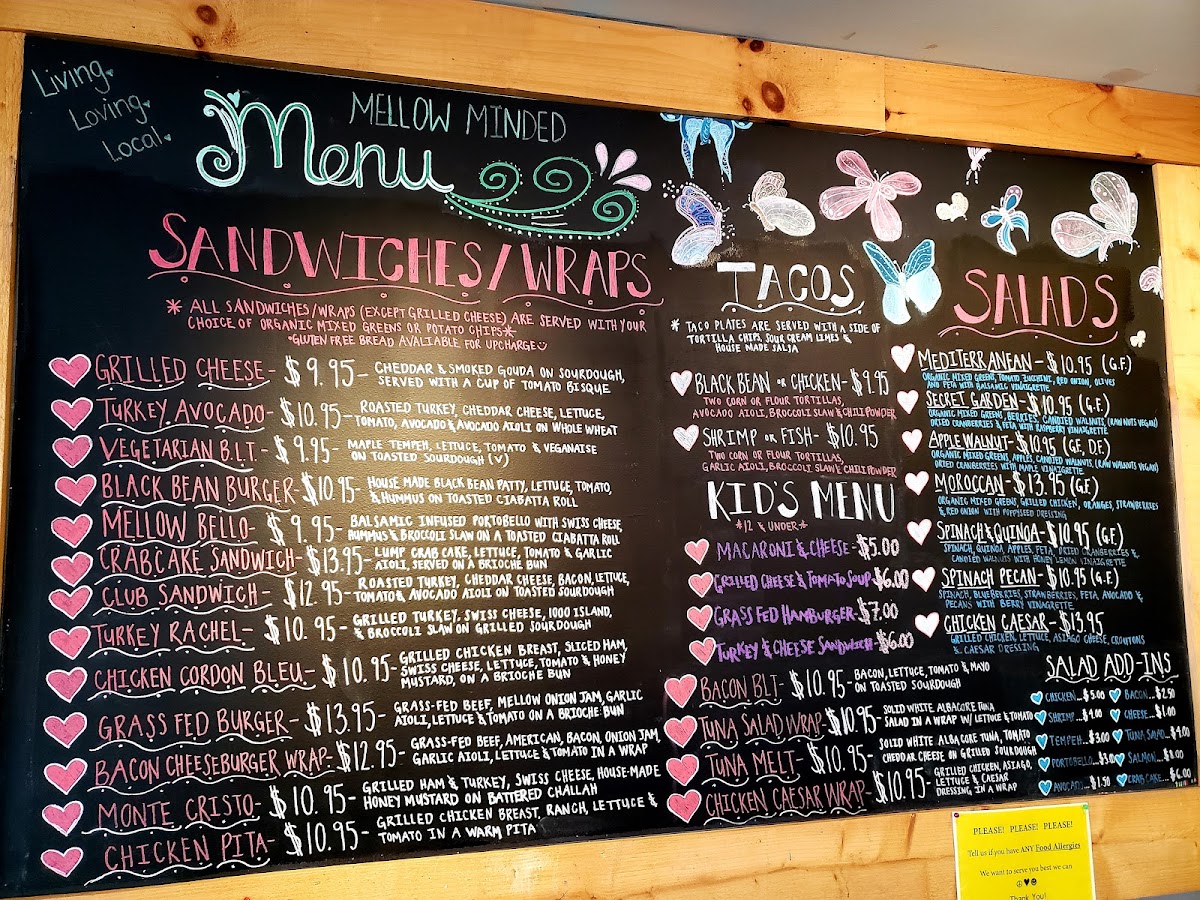 Living
Loving
Local
MELLOW MINDED
Menu
SANDWICHES/WRAPS
* ALL SANDWICHES/WRAPS (EXCEPT GRILLED CHEESE) ARE SERVED WITH YOUR
CHOICE OF ORGANIC MIXED GREENS OR POTATO CHIPS *
*GLUTEN FREE BREAD AVALIABLE FOR UPCHARGE
GRILLED CHEESE- $9.95- CHEDDAR & SMOKED GOUDA ON SOURDOUGH,
SERVED WITH A CUP OF TOMATO BISQUE
TURKEY AVOCADO- $10.95- ROASTED TURKEY, CHEDDAR CHEESE, LETTUCE,
TOMATO, AVOCADO & AVOCADO AIOLI ON WHOLE WHEAT
VEGETARIAN B.L.T.- $9.95- MAPLE TEMPEH, LETTUCE, TOMATO & VEGANAISE
ON TOASTED SOURDOUGH (V)
BLACK BEAN BURGER- $10.95- HOUSE MADE BLACK BEAN PATTY, LETTUCE, TOMATO,
& HUMMUS ON TOASTED CIABATTA ROLL
MELLOW BELLO- $9.95- BALSAMIC INFUSED PORTOBELLO WITH SWISS CHEESE,
HUMMUS & BROCCOLI SLAW ON A TOASTED CIABATTA ROLL
CRABCAKE SANDWICH- $13.95- LUMP CRAB CAKE, LETTUCE, TOMATO & GARLIC
AIOLI, SERVED ON A BRIOCHE BUN
CLUB SANDWICH- $12.95- ROASTED TURKEY, CHEDDAR CHEESE, BACON, LETTUCE,
TOMATO & AVOCADO AIOLI ON TOASTED SOURDOUGH
TURKEY RACHEL- $10.95- GRILLED TURKEY, SWISS CHEESE, 1000 ISLAND,
& BROCCOLI SLAW ON GRILLED SOURDOUGH
CHICKEN CORDON BLEU- $10.95- GRILLED CHICKEN BREAST, SLICED HAM,
SWISS CHEESE, LETTUCE, TOMATO & HONEY
MUSTARD, ON A BRIOCHE BUN
GRASS FED BURGER- $13.95- GRASS-FED BEEF, MELLOW ONION JAM, GARLIC
AIOLI, LETTUCE & TOMATO ON A BRIOCHE BUN
BACON CHEESEBURGER WRAP- $12.95- GRASS-FED BEEF, AMERICAN, BACON, ONION JAM,
GARLIC AIOLI, LETTUCE & TOMATO IN A WRAP
MONTE CRISTO- $10.95- GRILLED HAM & TURKEY, SWISS CHEESE, HOUSE-MADE
HONEY MUSTARD ON BATTERED CHALLAH
CHICKEN PITA- $10.95- GRILLED CHICKEN BREAST, RANCH, LETTUCE &
TOMATO IN A WARM PITA
TACOS
* TACO PLATES ARE SERVED WITH A SIDE OF
TORTILLA CHIPS, SOUR CREAM LIMES &
HOUSE MADE SALSA
BLACK BEAN OR CHICKEN- $9.95
TWO CORN OR FLOUR TORTILLAS,
AVOCADO AIOLI, BROCCOLI SLAW & CHILI POWDER
SHRIMP OR FISH- $10.95
TWO CORN OR FLOUR TORTILLAS,
GARLIC AIOLI, BROCCOLI SLAW & CHILI POWDER
KID'S MENU
*12 & UNDER*
MACARONI & CHEESE- $5.00
GRILLED CHEESE & TOMATO SOUP- $6.00
GRASS FED HAMBURGER- $7.00
TURKEY & CHEESE SANDWICH- $6.00
BACON BLT- $10.95- BACON, LETTUCE, TOMATO & MAYO
ON TOASTED SOURDOUGH
TUNA SALAD WRAP- $10.95- SOLID WHITE ALBACORE TUNA
SALAD IN A WRAP W/ LETTUCE & TOMATO
TUNA MELT- $10.95- SOLID WHITE ALBACORE TUNA, TOMATO
CHEDDAR CHEESE ON GRILLED SOURDOUGH
CHICKEN CAESAR WRAP- $10.95- GRILLED CHICKEN, ASIAGO,
LETTUCE & CAESAR
DRESSING IN A WRAP
SALADS
MEDITERRANEAN- $10.95 (G.F.)
ORGANIC MIXED GREENS, TOMATO, ZUCCHINI, RED ONION, OLIVES
AND FETA WITH BALSAMIC VINAIGRETTE
SECRET GARDEN- $10.95 (G.F.)
ORGANIC MIXED GREENS, BERRIES, CANDIED WALNUTS, (RAW WALNUTS VEGAN)
DRIED CRANBERRIES & FETA WITH RASPBERRY VINAIGRETTE
APPLE WALNUT- $10.95 (G.F., D.F.)
ORGANIC MIXED GREENS, APPLES, CANDIED WALNUTS, (RAW WALNUTS VEGAN)
DRIED CRANBERRIES WITH MAPLE VINAIGRETTE
MOROCCAN- $13.95 (G.F.)
ORGANIC MIXED GREENS, GRILLED CHICKEN, ORANGES, STRAWBERRIES
& RED ONION WITH POPPYSEED DRESSING
SPINACH & QUINOA- $10.95 (G.F.)
SPINACH, QUINOA, APPLES, FETA, DRIED CRANBERRIES &
CANDIED WALNUTS WITH HONEY LEMON VINAIGRETTE
SPINACH PECAN- $10.95 (G.F.)
SPINACH, BLUEBERRIES, STRAWBERRIES, FETA, AVOCADO &
PECANS WITH BERRY VINAGRETTE
CHICKEN CAESAR- $13.95
GRILLED CHICKEN, LETTUCE, ASIAGO CHEESE, CROUTONS
& CAESAR DRESSING
SALAD ADD-INS
CHICKEN...$5.00 BACON...$2.50
SHRIMP...$4.00 CHEESE...$1.00
TEMPEH...$3.00 TUNA SALAD...$4.00
PORTOBELLO...$3.00 SALMON...
AVOCADO...$1.50 CRAB CAKE...$6.00
PLEASE! PLEASE! PLEASE!
Tell us if you have ANY Food Allergies
We want to serve you best we can
Thank You!